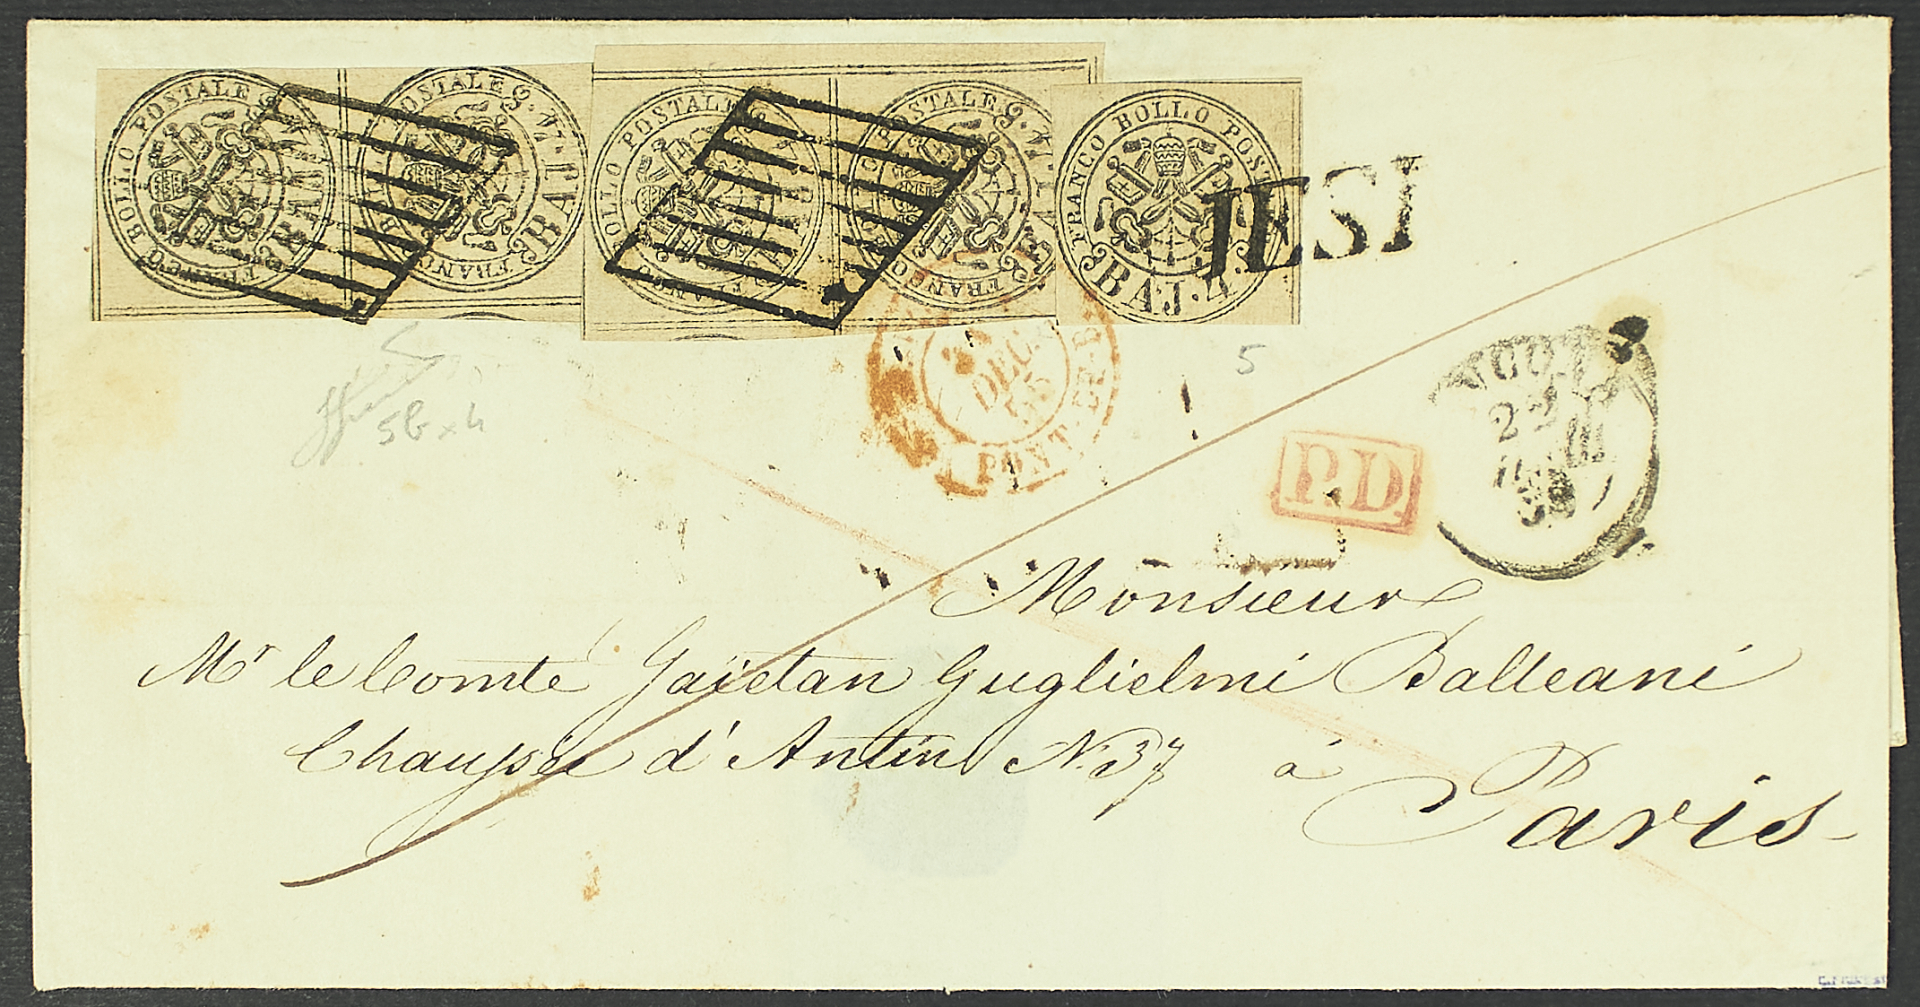 FRANCO BOLLO POSTALE BAJ. 4.
FRANCO BOLLO POSTALE BAJ. 4.
FRANCO BOLLO POSTALE BAJ.
FRANCO BOLLO POSTALE
FRANCO BOLLO POST BAJ. 4.
IESI
5
5b x 4
DEC.
55
PONT-DE-B
P.D.
22
Monsieur
Mr le Comte Gaietan Guglielmi Balleani
Chaussée d'Antin N. 37 à
Paris